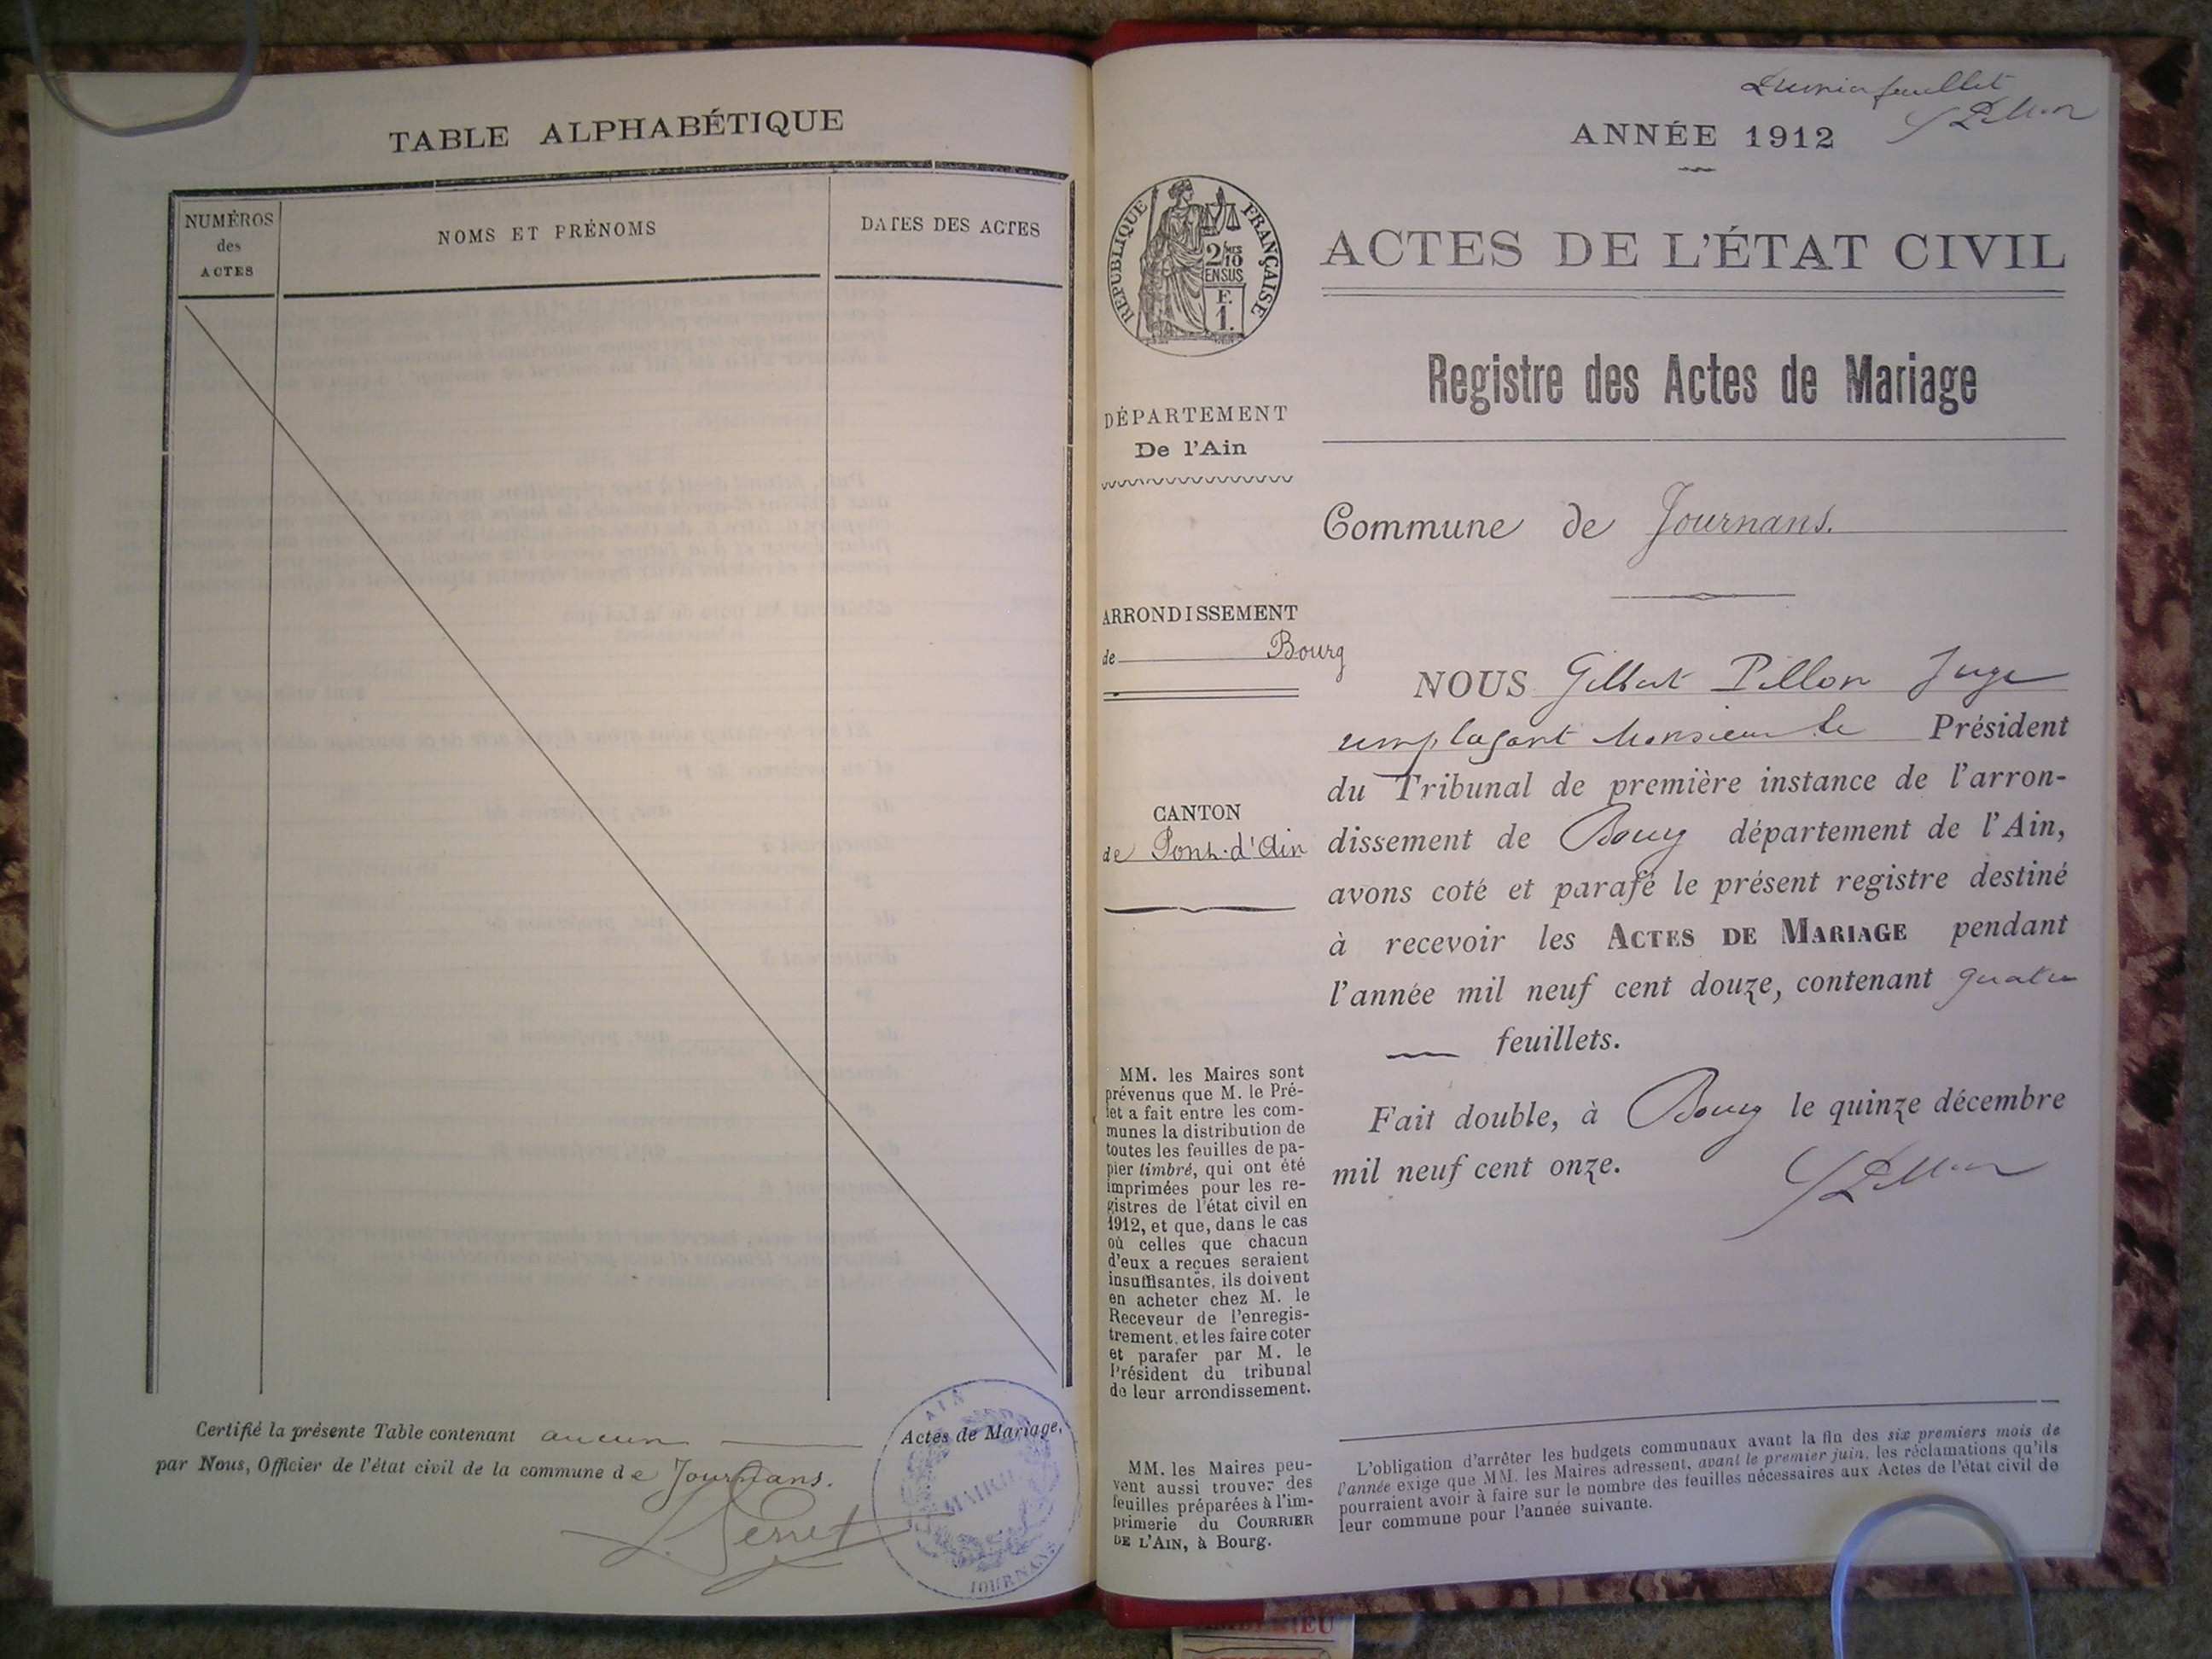 TABLE ALPHABÉTIQUE
NUMÉROS
des
ACTES
NOMS ET PRÉNOMS
DATES DES ACTES
Certifié la présente Table contenant aucun Actes de Mariage,
par Nous, Officier de l'état civil de la commune de Journans.
Perret
AIN
MAIRIE
JOURNANS
feuillet
Pillon
ANNÉE 1912
RÉPUBLIQUE FRANÇAISE
2/10
EN SUS
E.
1.
ACTES DE L'ÉTAT CIVIL
Registre des Actes de Mariage
DÉPARTEMENT
De l'Ain
Commune de Journans.
ARRONDISSEMENT
de Bourg
CANTON
de Pont-d'Ain
NOUS Gilbert Pillon Juge
remplaçant Monsieur le Président
du Tribunal de première instance de l'arron-
dissement de Bourg département de l'Ain,
avons coté et parafé le présent registre destiné
à recevoir les ACTES DE MARIAGE pendant
l'année mil neuf cent douze, contenant quatre
feuillets.
Fait double, à Bourg le quinze décembre
mil neuf cent onze.
Pillon
MM. les Maires sont
prévenus que M. le Pré-
fet a fait entre les com-
munes la distribution de
toutes les feuilles de pa-
pier timbré, qui ont été
imprimées pour les re-
gistres de l'état civil en
1912, et que, dans le cas
où celles que chacun
d'eux a reçues seraient
insuffisantes, ils doivent
en acheter chez M. le
Receveur de l'enregis-
trement, et les faire coter
et parafer par M. le
Président du tribunal
de leur arrondissement.
MM. les Maires peu-
vent aussi trouver des
feuilles préparées à l'im-
primerie du COURRIER
DE L'AIN, à Bourg.
L'obligation d'arrêter les budgets communaux avant la fin des six premiers mois de
l'année exige que MM. les Maires adressent, avant le premier juin, les réclamations qu'ils
pourraient avoir à faire sur le nombre des feuilles nécessaires aux Actes de l'état civil de
leur commune pour l'année suivante.